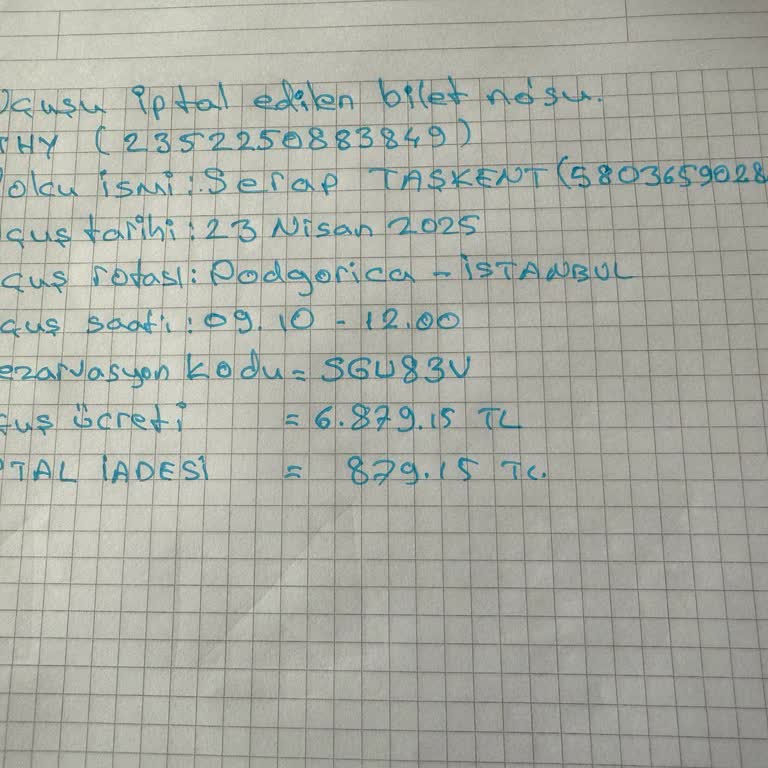 Uçuşu iptal edilen bilet no'su.
THY (2352250883849)
Yolcu ismi: Serap TAŞKENT (5803659028
uçuş tarihi: 23 Nisan 2025
uçuş rotası: Podgorica - İSTANBUL
uçuş saati: 09.10 - 12.00
Rezarvasyon kodu = SGU83V
uçuş ücreti = 6.879.15 TL
İPTAL İADESİ = 879.15 TL.